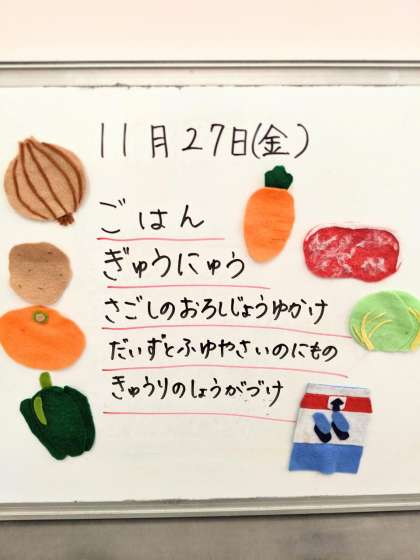 11月27日(金)
ごはん
ぎゅうにゅう
さごしのおろしじょうゆかけ
だいずとふゆやさいのにもの
きゅうりのしょうがづけ